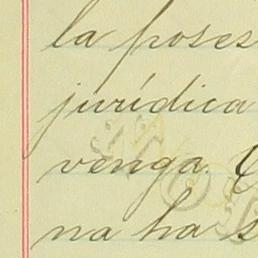 la poses
jurídica
venga.
na ha s